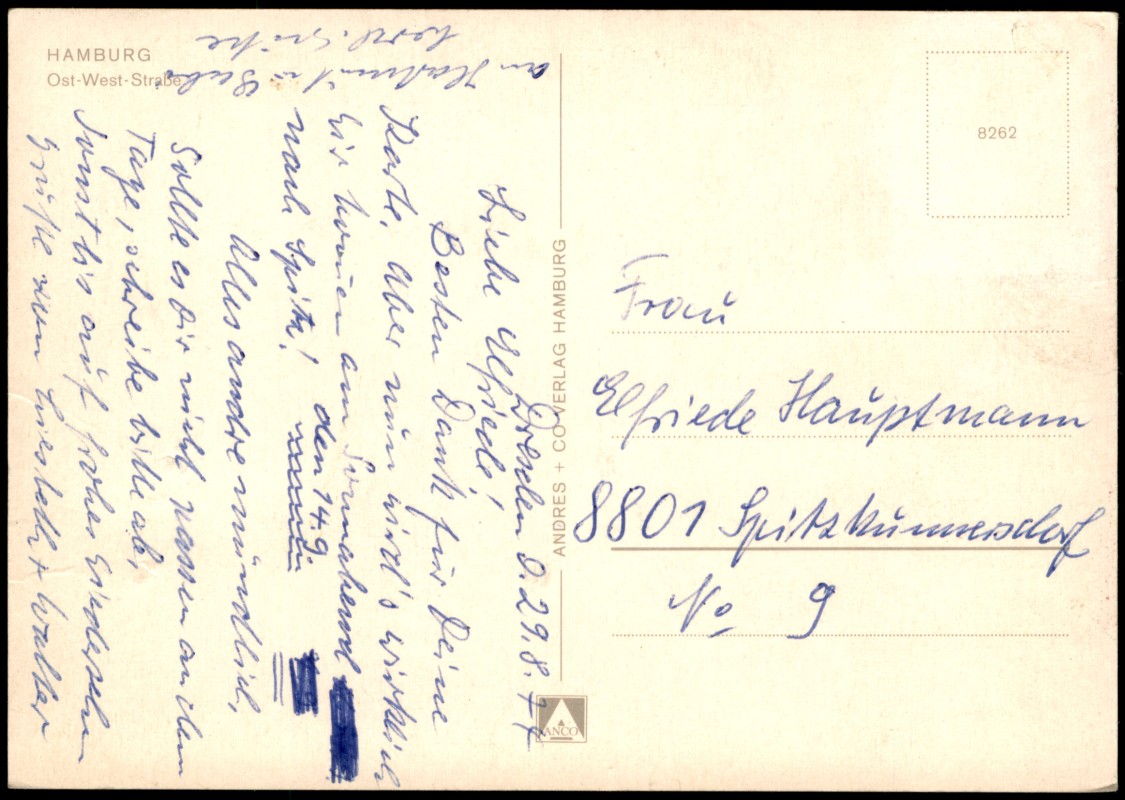 HAMBURG
Ost-West-Straße
Dresden d. 29.8.74
Liebe Elfriede!
Besten Dank für Deine
Karte, aber nun wird's wirklich
wir kommen am Sonnabend
den 14.9.
nach Spitz!
Alles andre mündlich,
Sollte es Dir nicht passen an dem
Tage, schreibe bitte ab,
Sonst bis auf frohes Wiedersehn
Grüße von Liesbeth + Walter
an Hartmut u.
herzl. Grüße
ANDRES + CO VERLAG HAMBURG
ANCO
8262
Frau
Elfriede Hauptmann
8801 Spitzkunnersdorf
No 9